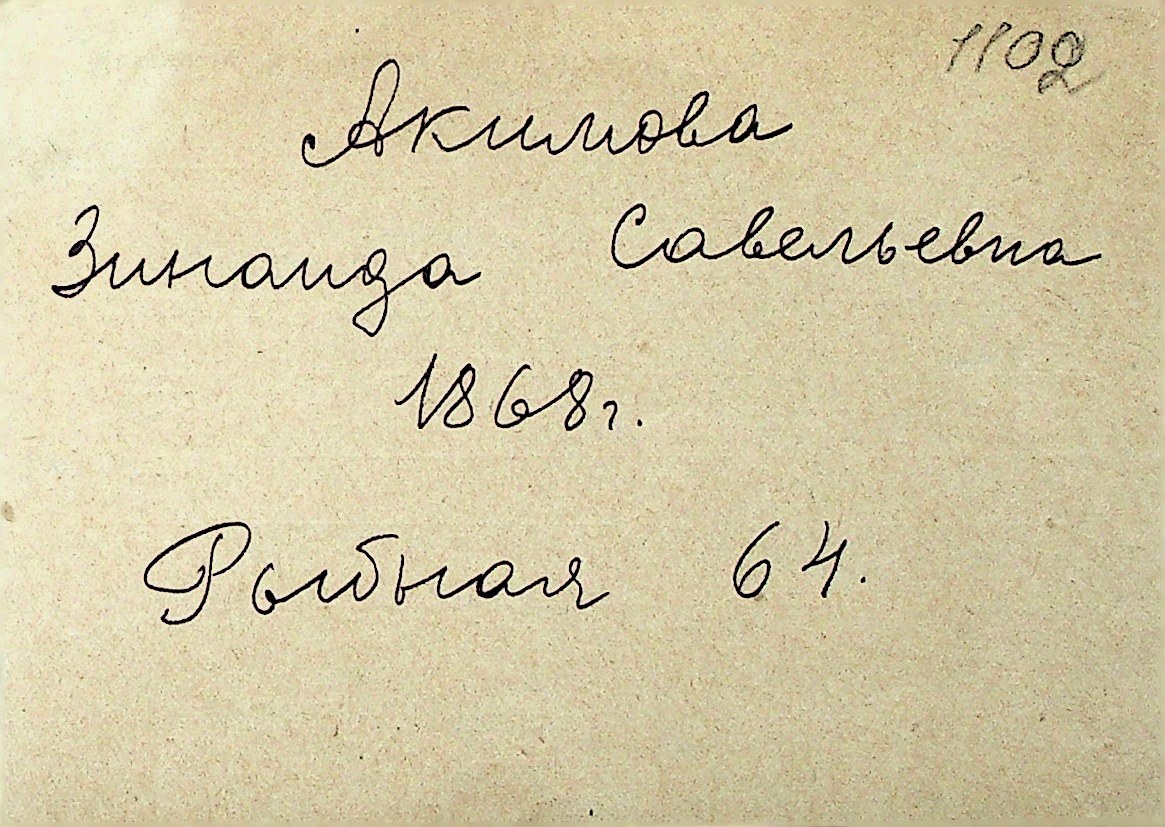 1102
Акимова
Зинаида Савельевна
1868г.
Рыбная 64.